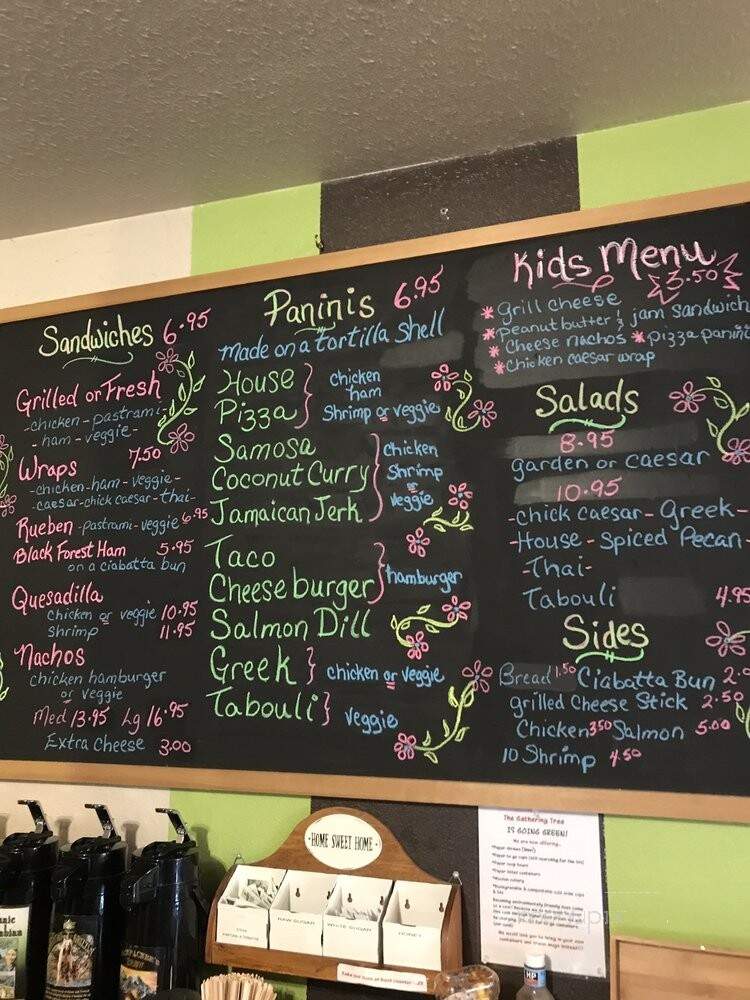 Sandwiches 6.95
Grilled or Fresh
-chicken-pastrami-
-ham-veggie-
Wraps 7.50
-chicken-ham-veggie-
-caesar-chick caesar-thai-
Rueben -pastrami-veggie 6.95
Black Forest Ham 5.95
on a ciabatta bun
Quesadilla
chicken or veggie 10.95
shrimp 11.95
Nachos
chicken hamburger
or veggie
Med 13.95 Lg 16.95
Extra cheese 3.00
Paninis 6.95
made on a tortilla shell
House
Pizza
chicken
ham
Shrimp or veggie
Samosa
Coconut Curry
Jamaican Jerk
chicken
Shrimp
or
veggie
Taco
Cheeseburger
hamburger
Salmon Dill
Greek } chicken or veggie
Tabouli } veggie
Kids Menu
3.50
* grill cheese
* Peanut butter & jam sandwich
* cheese nachos * pizza panini
* chicken caesar wrap
Salads
8.95
garden or caesar
10.95
-chick caesar-Greek-
-House-Spiced Pecan-
-Thai-
Tabouli 4.95
Sides
Bread 1.50 Ciabatta Bun 2.
grilled Cheese Stick 2.50
Chicken 3.50 Salmon 5.00
10 Shrimp 4.50
HOME SWEET HOME
RAW SUGAR
WHITE SUGAR
HONEY
The Gathering Tree
IS GOING GREEN!
We are now offering..
HP